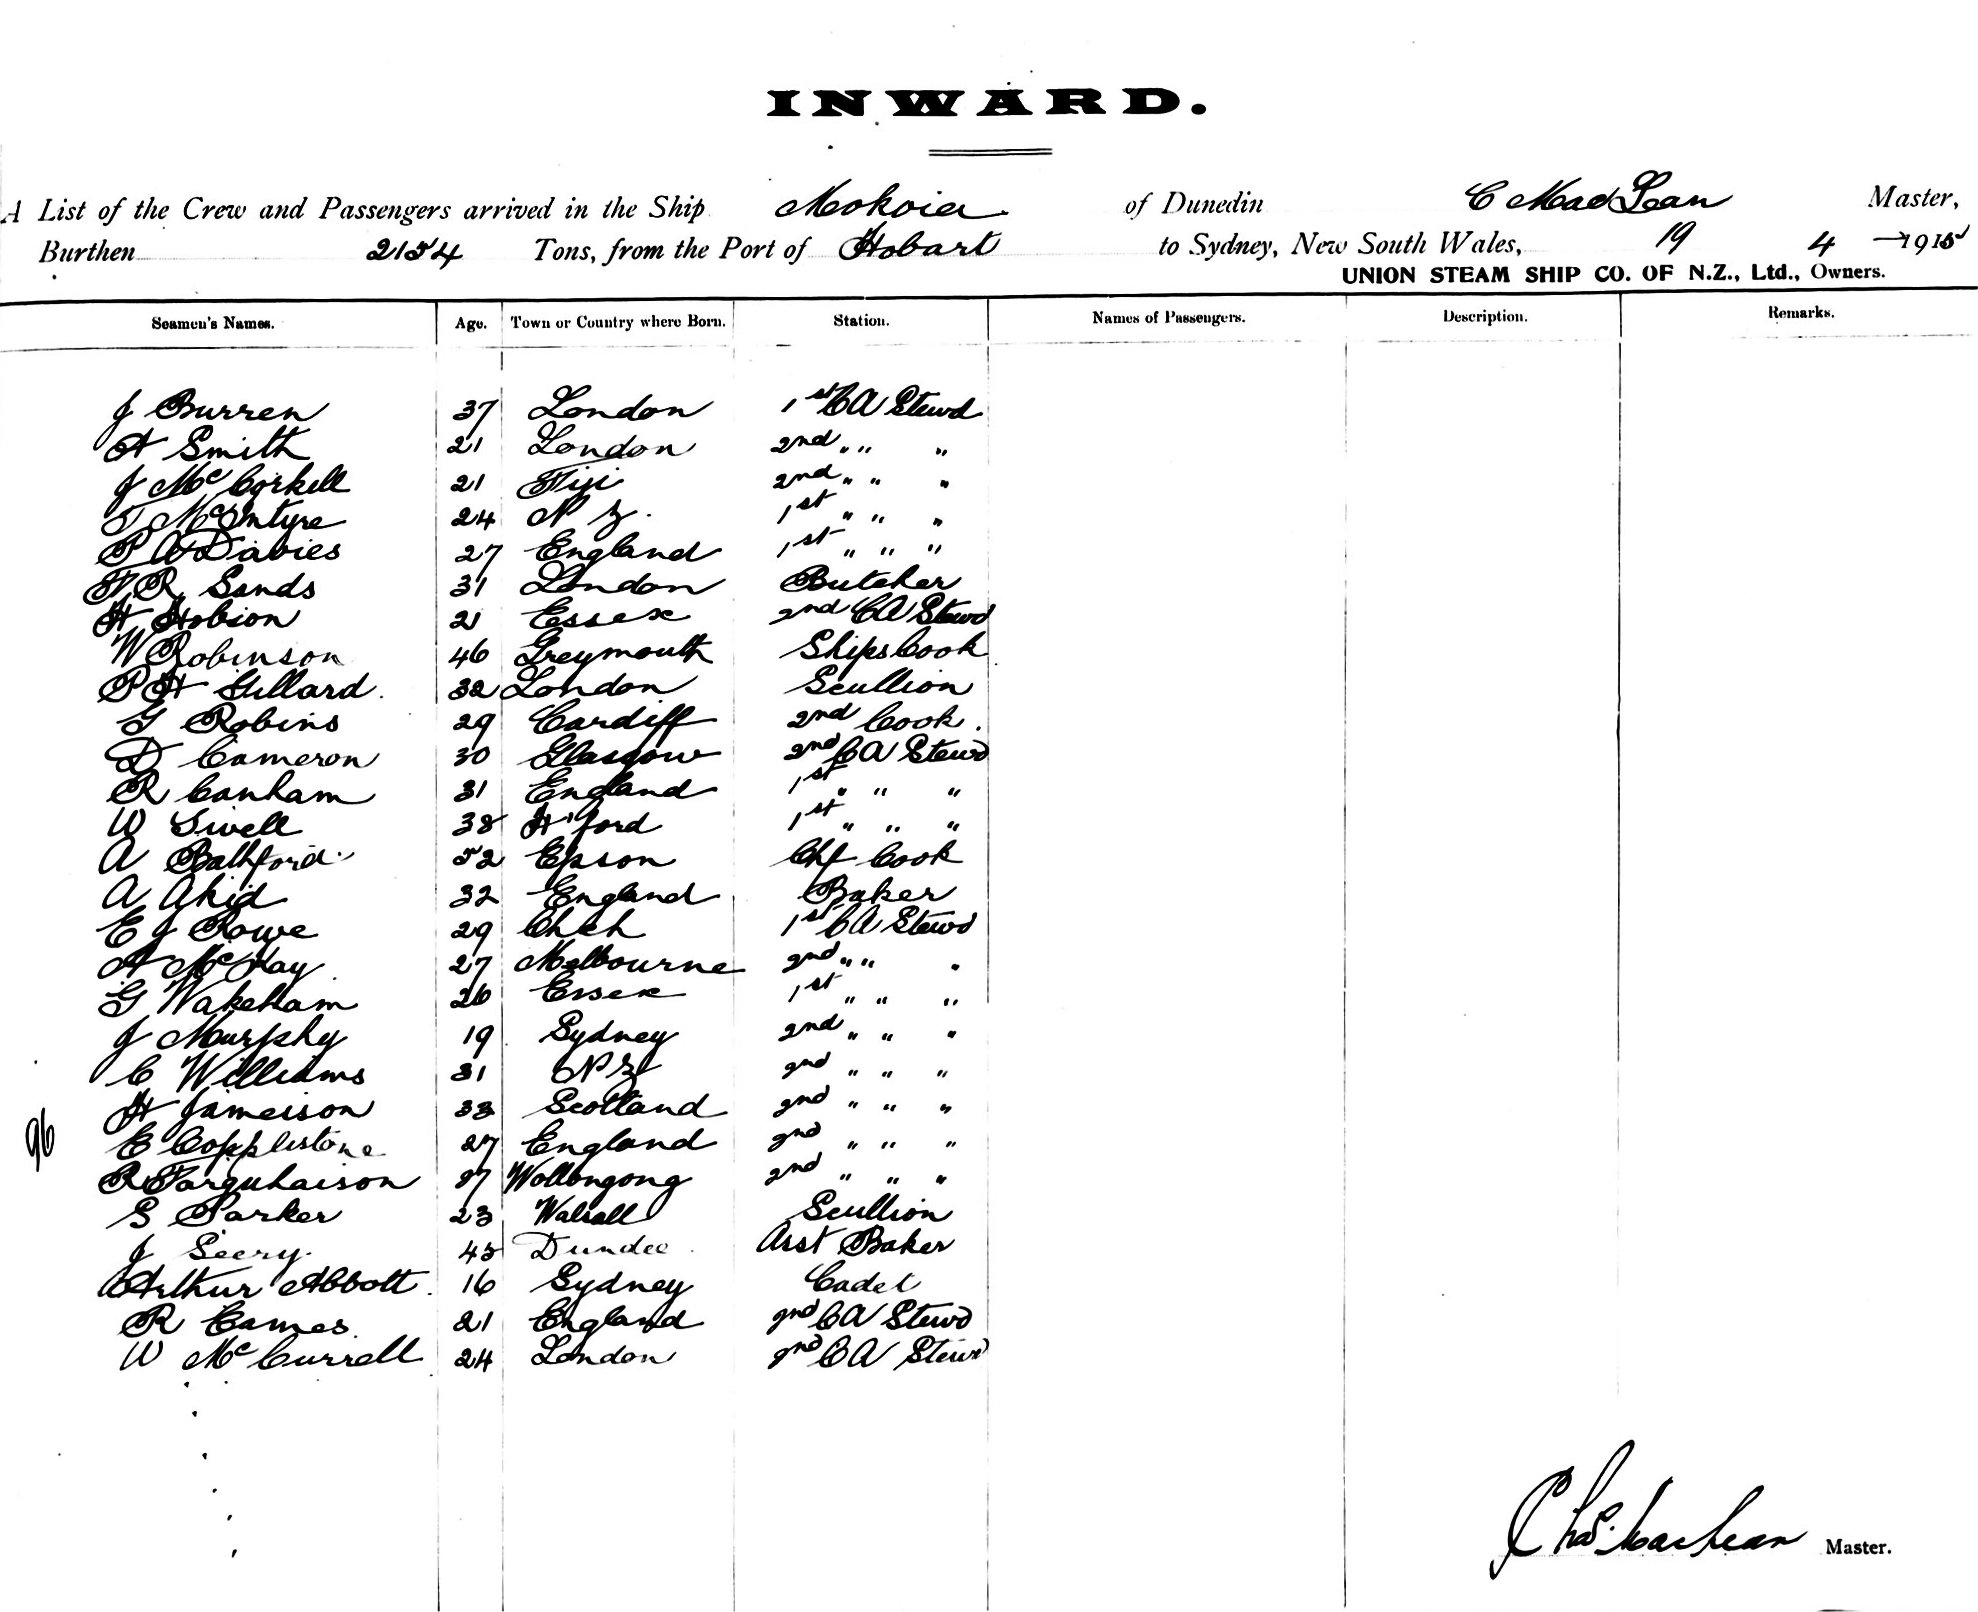 INWARD.
A List of the Crew and Passengers arrived in the Ship Mokoia of Dunedin C MacLean Master,
Burthen 2154 Tons, from the Port of Hobart to Sydney, New South Wales, 19 4 1915
UNION STEAM SHIP CO. OF N.Z., Ltd., Owners.
Seamen's Names. Age. Town or Country where Born. Station. Names of Passengers. Description. Remarks.
J Burren 37 London 1st CA Stewd
A Smith 21 London 2nd " " "
J McCorkell 21 Fiji 2nd " " "
T McIntyre 24 N Z. 1st " " "
P A Davies 27 England 1st " " "
F R Sands 31 London Butcher
H Hobson 21 Essex 2nd CA Stewd
W Robinson 46 Greymouth Ships Cook
P H Gillard. 32 London Scullion
G Robins 29 Cardiff 2nd Cook.
D Cameron 30 Glasgow 2nd CA Stewd
R Canham 31 England 1st " " "
W Sivell 38 H'ford 1st " " "
A Bathford. 52 Epson Chf Cook
A Akid 32 England Baker
E J Rowe 29 Chch 1st CA Stewd
A McKay 27 Melbourne 2nd " " "
G Wakeham 26 Essex 1st " " "
J Murphy 19 Sydney 2nd " " "
C Williams 31 N Z 2nd " " "
H Jameison 33 Scotland 2nd " " "
96 E Copplestone 27 England 2nd " " "
R Farquhaison 27 Wollongong 2nd " " "
G Parker 23 Walsall Scullion
J Seery. 45 Dundee Asst Baker
Arthur Abbott. 16 Sydney Cadet
R Eames 21 England 2nd CA Stewd
W McCurrell 24 London 2nd CA Stewd
Chas. MacLean Master.